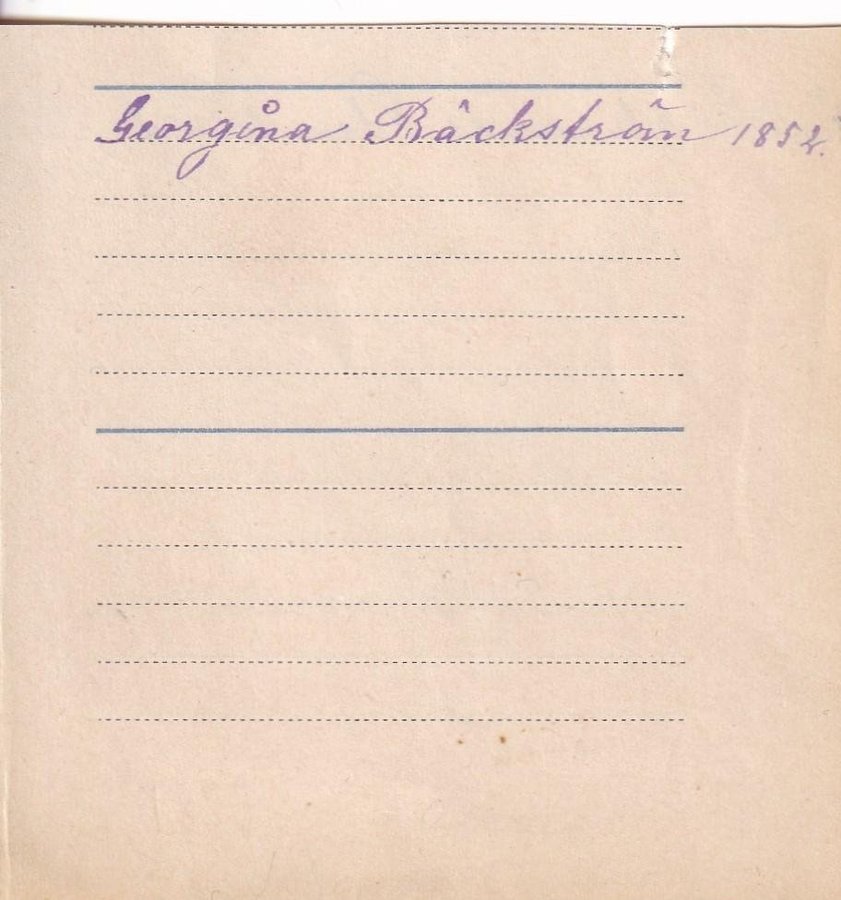 Georgina Bäckström 1852.